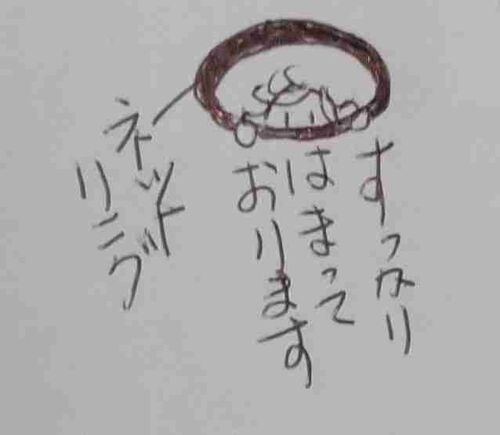 すっかり
はまって
おります
ネット
リング